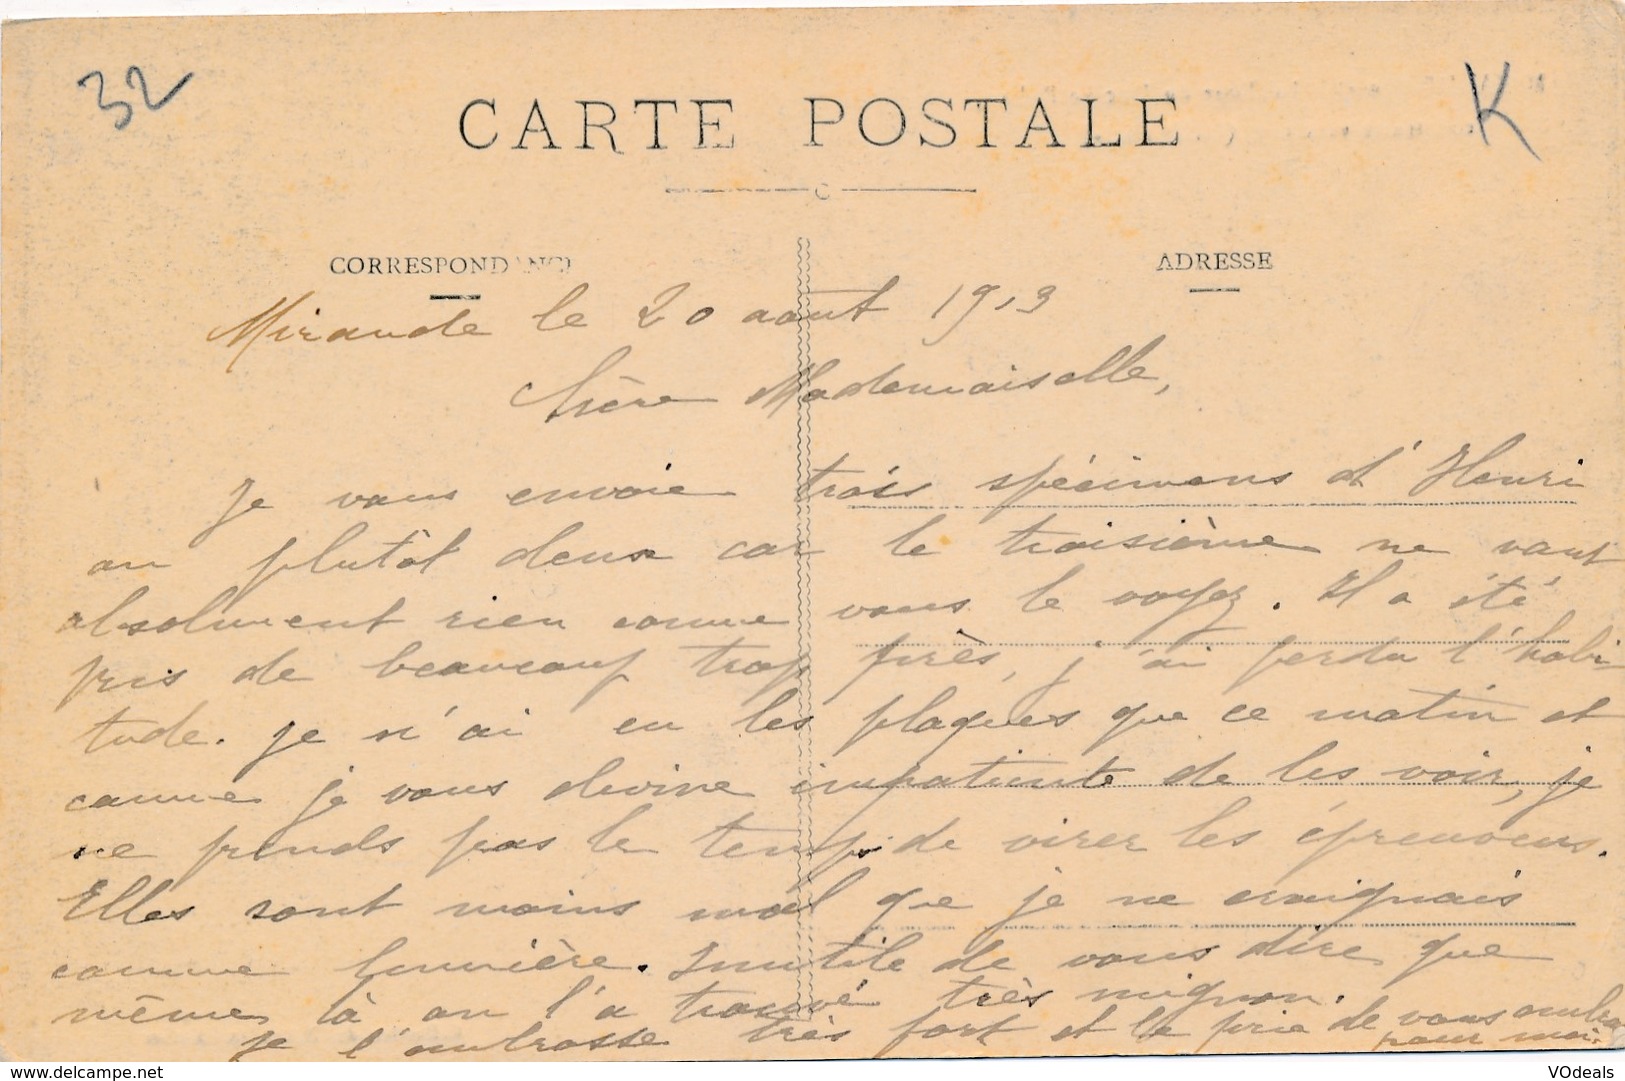 32
K
CARTE POSTALE
CORRESPONDANCE
ADRESSE
Mirande le 20 aout 1913
Chère Mademoiselle,
Je vous envoie trois spécimens d'Henri
ou plutôt deux car le troisième ne vaut
absolument rien comme vous le voyez. Il a été
pris de beaucoup trop près, j'ai perdu l'habi
tude. Je n'ai eu les plaques que ce matin et
comme je vous devine impatiente de les voir, je
ne prends pas le temps de virer les épreuves.
Elles sont moins mal que je ne craignais
comme lumière. Inutile de vous dire que
même là on l'a trouvé très mignon.
Je l'embrasse très fort et le prie de vous embrasser
pour moi.
VOdeals